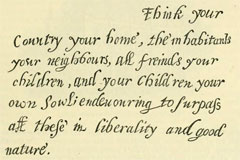 Think your
Country your home, the inhabitants
your neighbours, all freinds your
children, and your Children your
own Souls endeuouring to surpass
all these in liberality and good
nature.